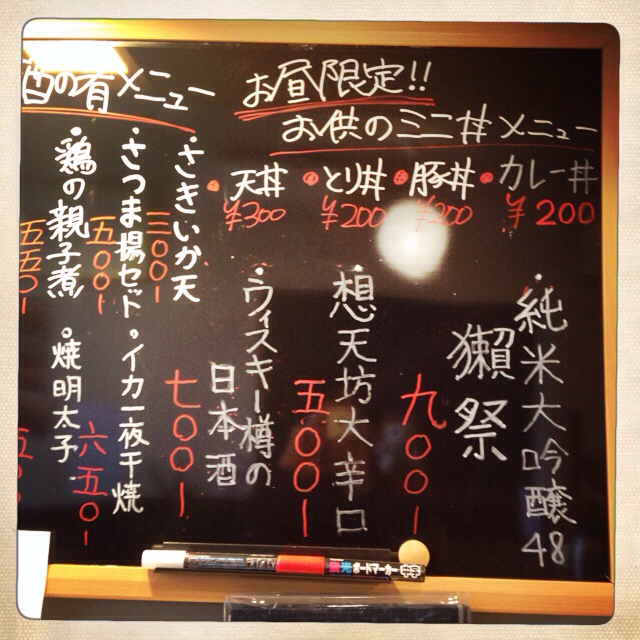 お昼限定!!
お供のミニ丼メニュー
カレー丼
¥200
・豚丼
・とり丼
¥200
・天丼
¥300
・純米大吟醸48
獺祭
九〇〇ー
・想天坊大辛口
五〇〇ー
・ウィスキー樽の
日本酒
七〇〇ー
酒の肴メニュー
・さきいか天
三〇〇ー
・さつま揚セット
五〇〇ー
・イカ一夜干焼
六五〇ー
・鶏の親子煮
五五〇ー
・焼明太子
蛍光ボードマーカー 中字